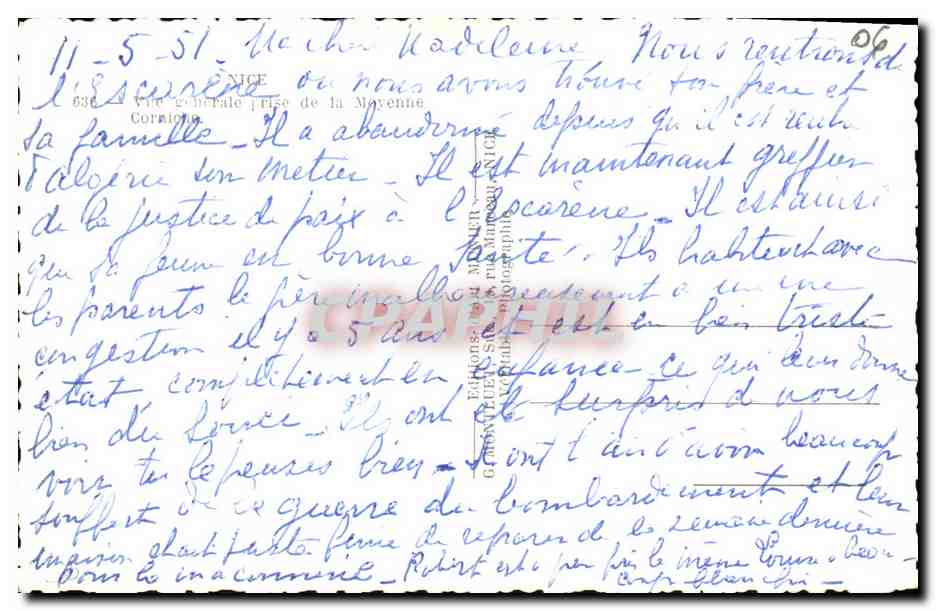 06
11-5-51. Ma chère Madeleine Nous rentrons de
l'Escarène où nous avons trouvé son frère et
NICE
636 - Vue générale prise de la Moyenne
Corniche
sa famille - Il a abandonné depuis qu'il est rentré
d'algérie son métier - Il est maintenant greffier
de la justice de paix à l'Escarène - Il est ainsi
que sa femme en bonne santé. Ils habitent avec
les parents le père malheureusement a eu une
congestion il y a 5 ans et est en bien triste
état, complètement en enfance ce qui leur donne
bien du souci - Ils ont été surpris de nous
voir tu le penses bien - Ils ont l'air d'avoir beaucoup
souffert de la guerre du bombardement et leur
maison était juste finie de réparer de la semaine dernière
Robert est à peu près le même
beau-
coup blanchi -
Editions
MONTLUET
rue
NICE
Véritable photographie
CPAPHIL